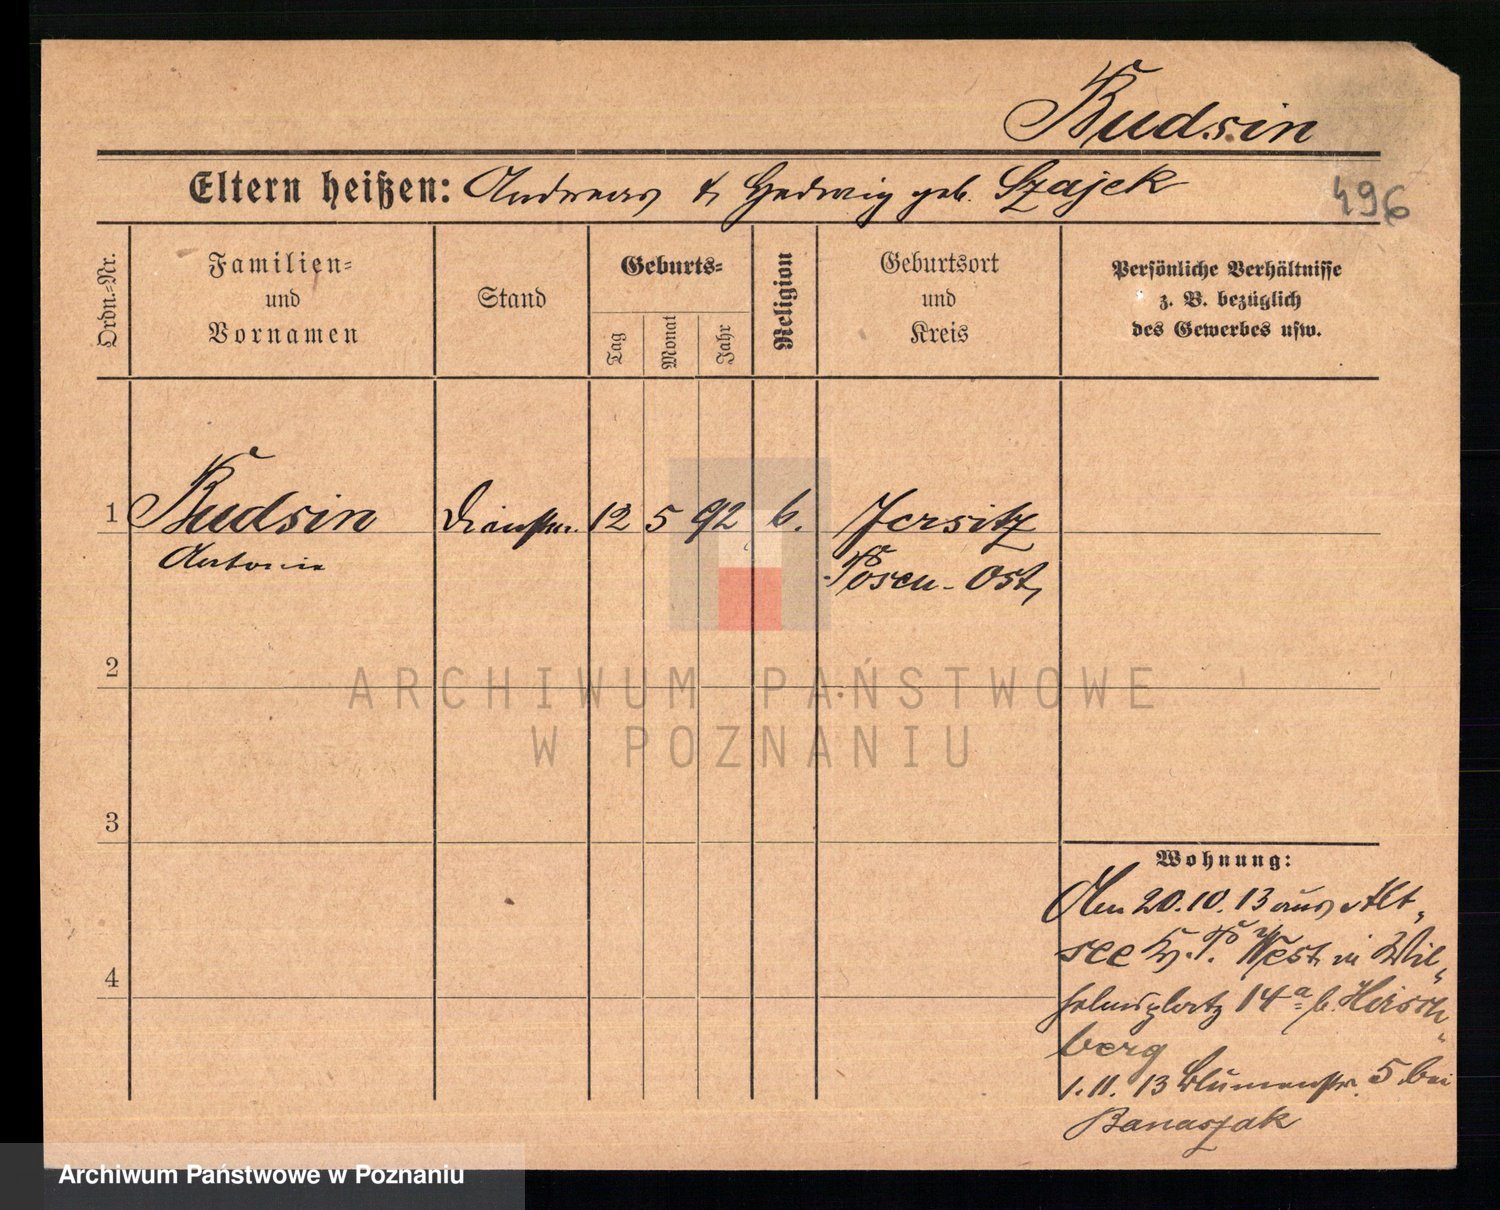 Budsin
Eltern heißen: Andreas & Hedwig geb. Szajek
496
Ordn.-Nr.
Familien-
und
Vornamen
Stand
Geburts-
Tag
Monat
Jahr
Religion
Geburtsort
und
Kreis
Persönliche Verhältnisse
z. B. bezüglich
des Gewerbes usw.
1 Budsin 12 5 92 Jersitz
Antonie Posen-Ost,
2
ARCHIWUM PAŃSTWOWE
W POZNANIU
3
Wohnung:
20.10.13 aus Alt-
see K. P. West in Wil-
helmplatz 14a b. Hirsch-
berg
4
1.11.13 Blumenstr. 5 bei
Banaszak
Archiwum Państwowe w Poznaniu